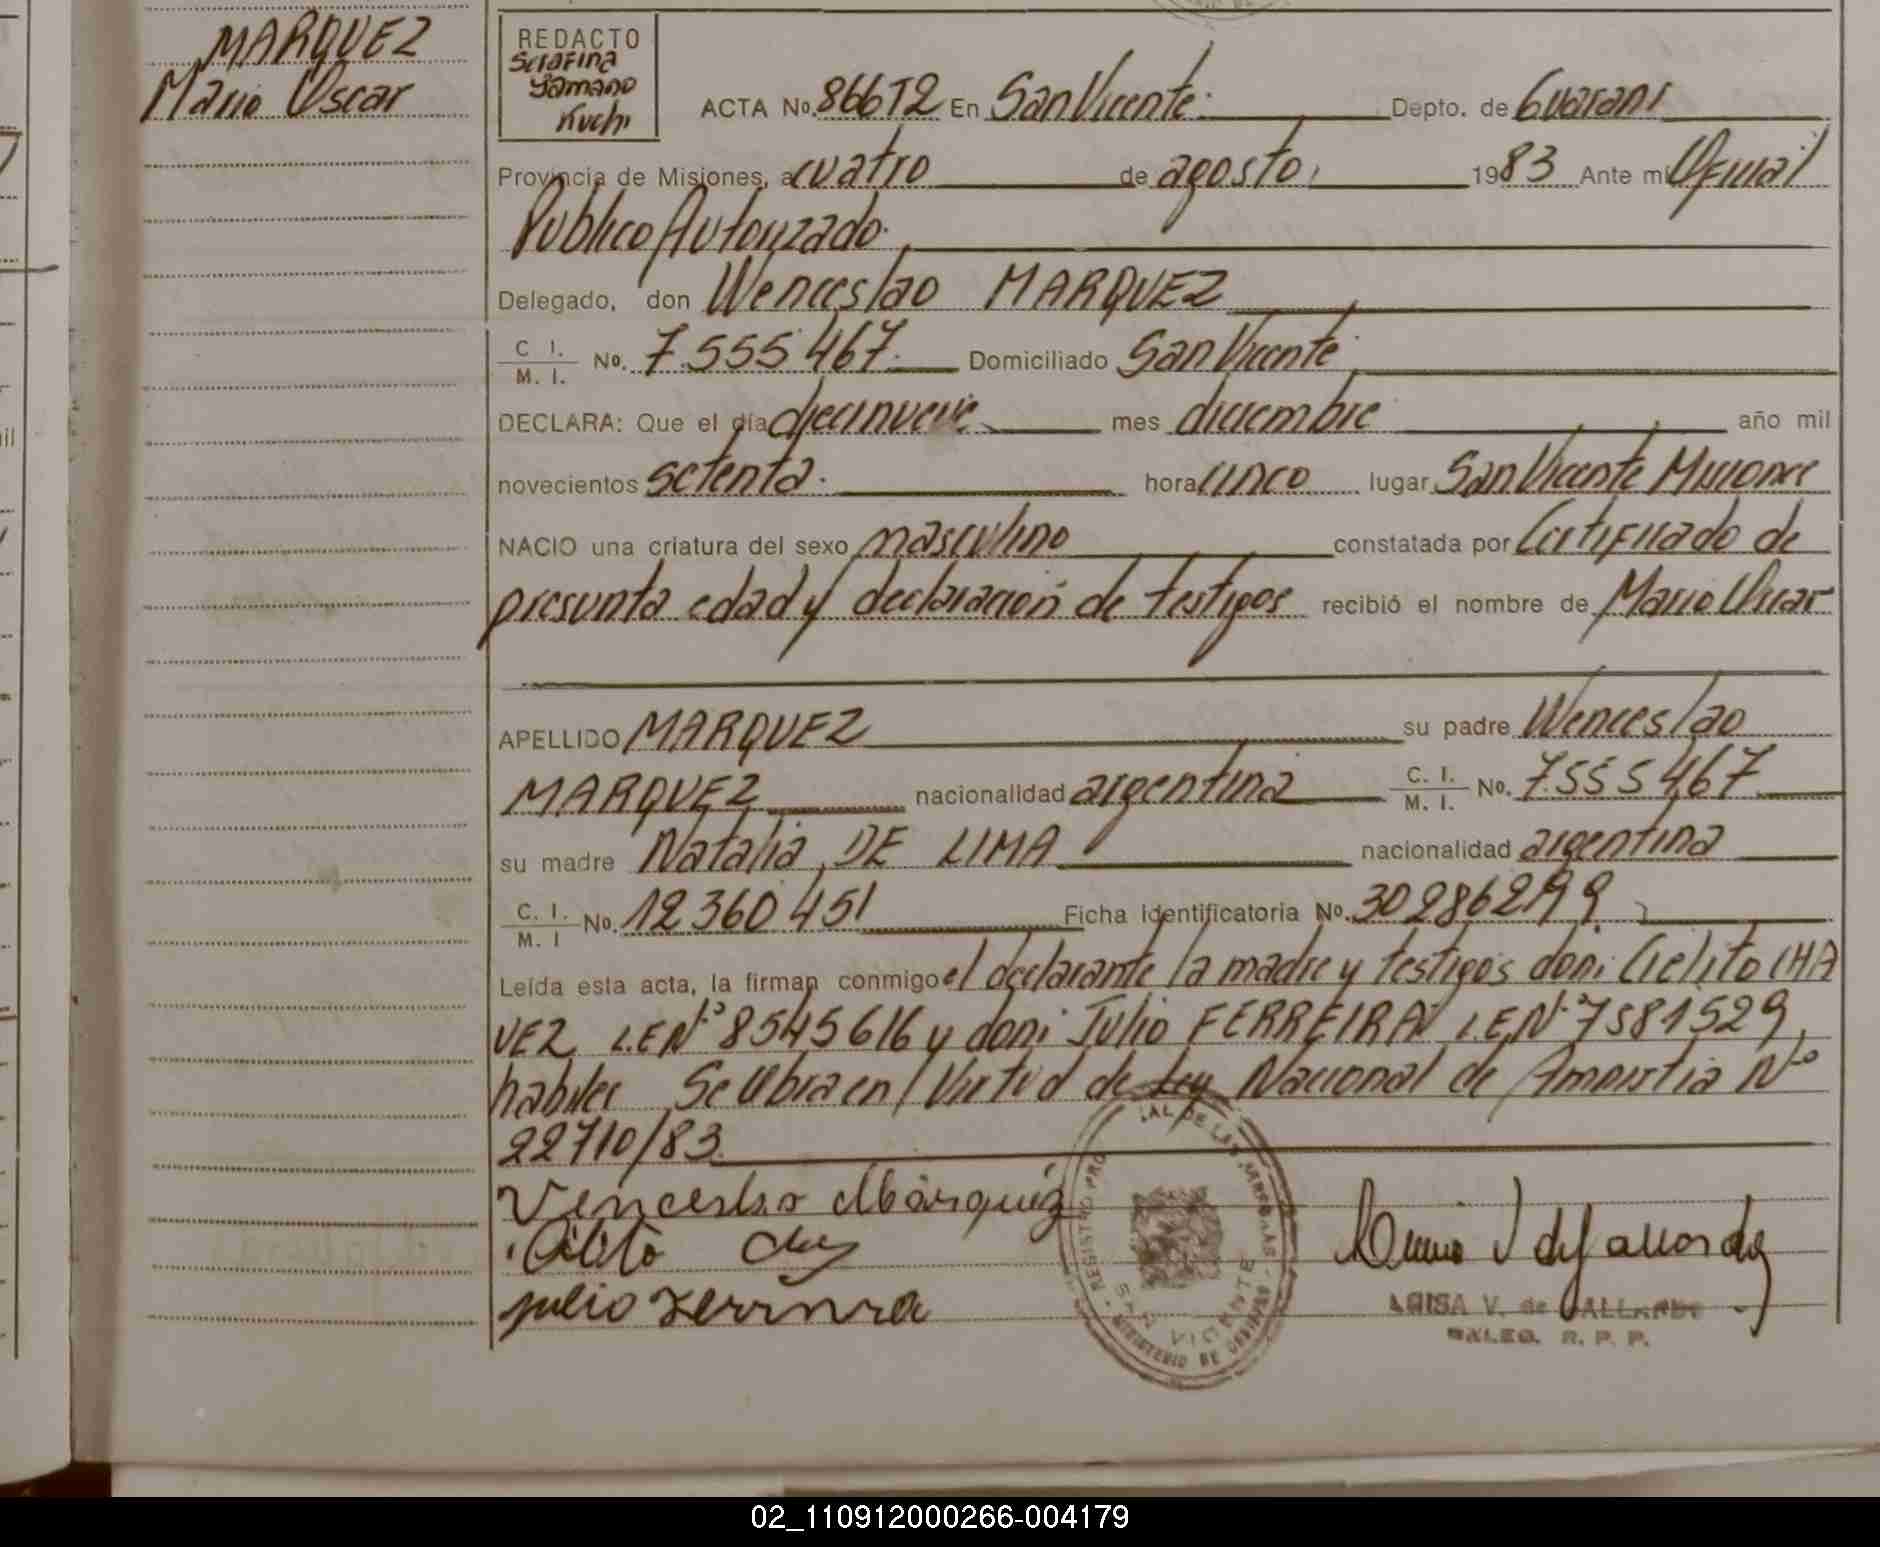 MARQUEZ
Mario Oscar
REDACTO
Serafina
Gamano
Kuchi
ACTA No. 866T2 En San Vicente. Depto. de Guarani
Provincia de Misiones, a cuatro de agosto, 1983 Ante mi Oficial
Publico Autorizado.
Delegado, don Wenceslao MARQUEZ
C. I. / M. I. No. 7.555.467. Domiciliado San Vicente
DECLARA: Que el día diecinueve mes diciembre año mil
novecientos setenta. hora cinco lugar San Vicente Misiones
NACIO una criatura del sexo masculino constatada por Certificado de
presunta edad y declaracion de testigos recibió el nombre de Mario Oscar
APELLIDO MARQUEZ su padre Wenceslao
MARQUEZ nacionalidad argentina C. I. / M. I. No. 7.555.467
su madre Natalia DE LIMA nacionalidad argentina
C. I. / M. I No. 12360451 Ficha identificatoria No.
Leída esta acta, la firman conmigo el declarante la madre y testigos don: Cielito CHA
VEZ L.E.Nº 8545616 y don: Julio FERREIRA L.E.Nº 7581529,
habiles Se labra en Virtud de Ley Nacional de Amnistia Nº
22710/83.
Venceslao Márquez
Cielito
julio Ferreira
REGISTRO PROVINCIAL DE LAS PERSONAS
MINISTERIO DE GOBIERNO
VICENTE
V. de GALLARDO
DELEG. R. P. P.
02_110912000266-004179